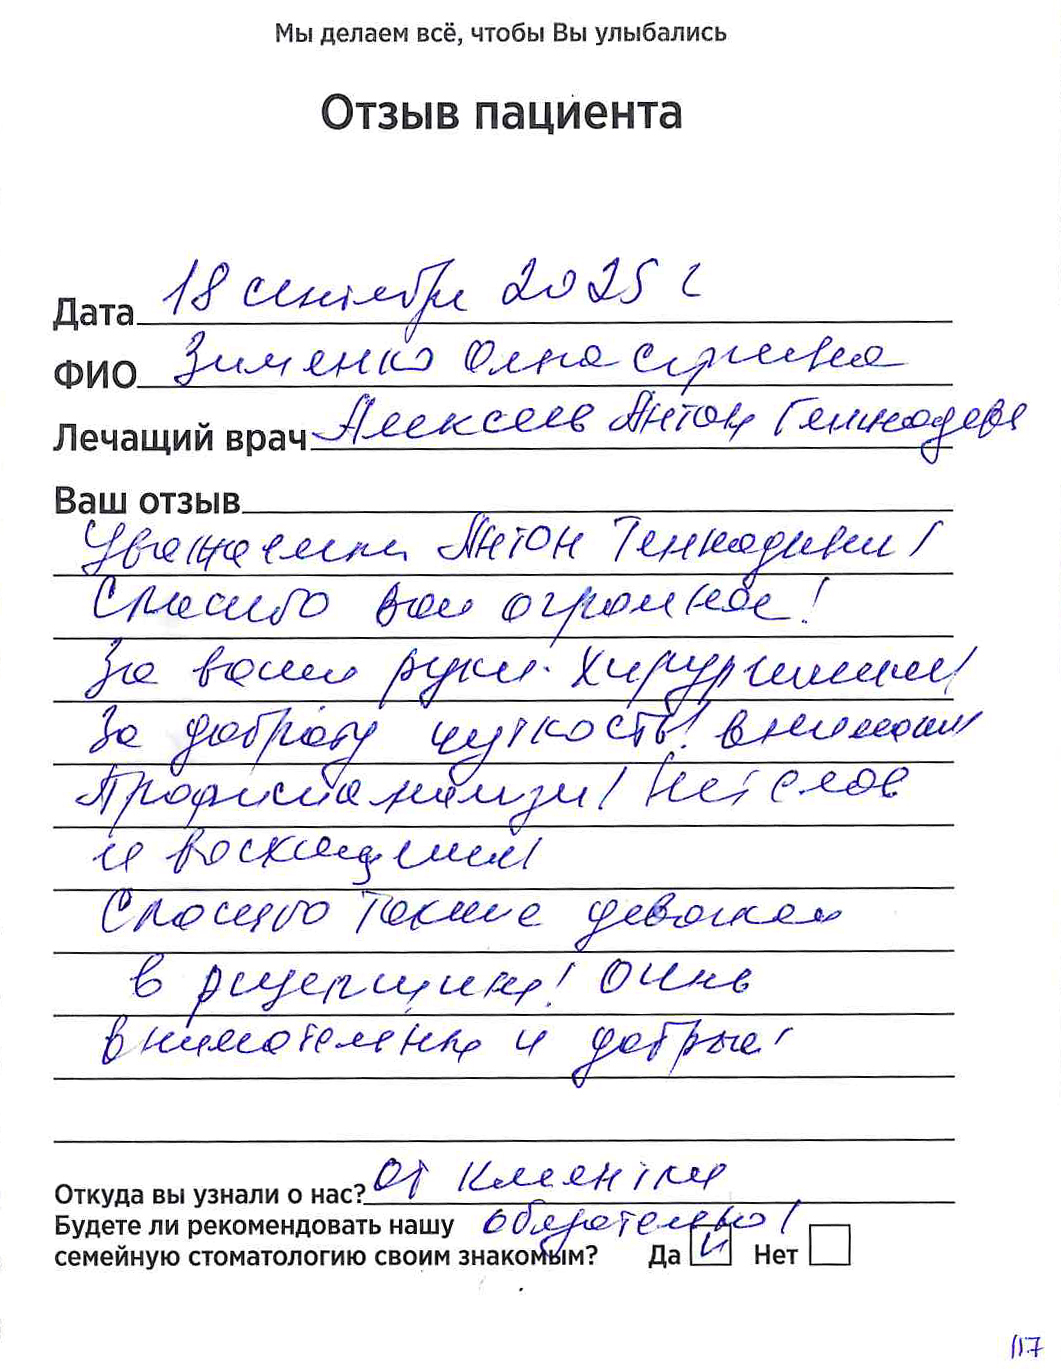 Мы делаем всё, чтобы Вы улыбались
Отзыв пациента
Дата 18 сентября 2025 г
ФИО Зименко Анна Сергеевна
Лечащий врач Алексеев Антон Геннадьев
Ваш отзыв
Уважаемый Антон Геннадиевич!
Спасибо вам огромное!
За ваши руки хирургические!
За доброту чуткость! внимание!
Профессионализм! Нет слов
и восхищения!
Спасибо также девочкам
в рецепшене! Очень
внимательные и добрые!
Откуда вы узнали о нас? От клиентки
Будете ли рекомендовать нашу обязательно!
семейную стоматологию своим знакомым? Да Нет
117